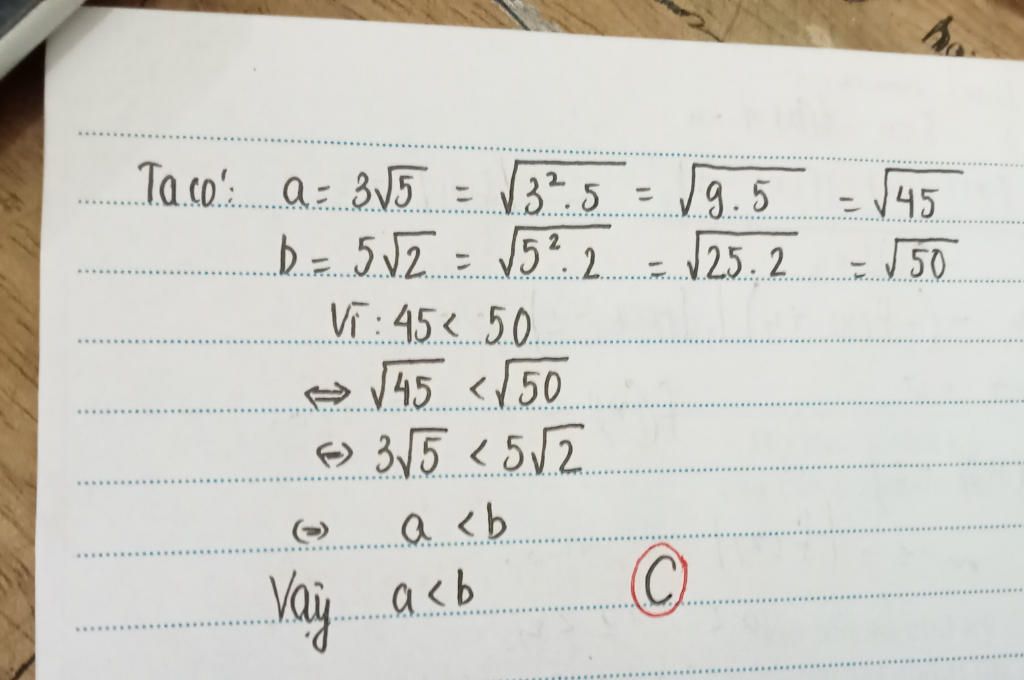 Ta có: a = 3√5 = √3².5 = √9.5 = √45
b = 5√2 = √5².2 = √25.2 = √50
Vì: 45 < 50
⇔ √45 < √50
⇔ 3√5 < 5√2
⇔ a < b
Vậy a < b C